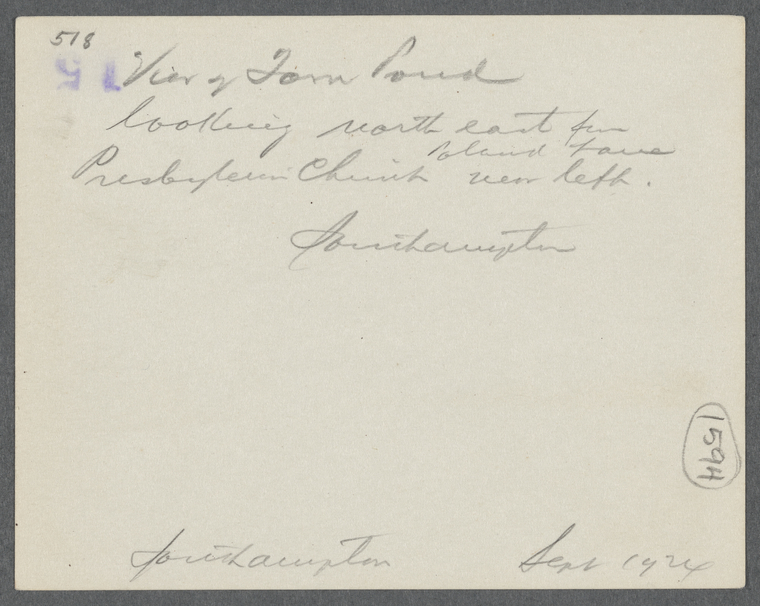 518
View of Town Pond
looking north east from
Lane
Presbyterian Church near left.
Southampton
1594
Southampton Sept 1924